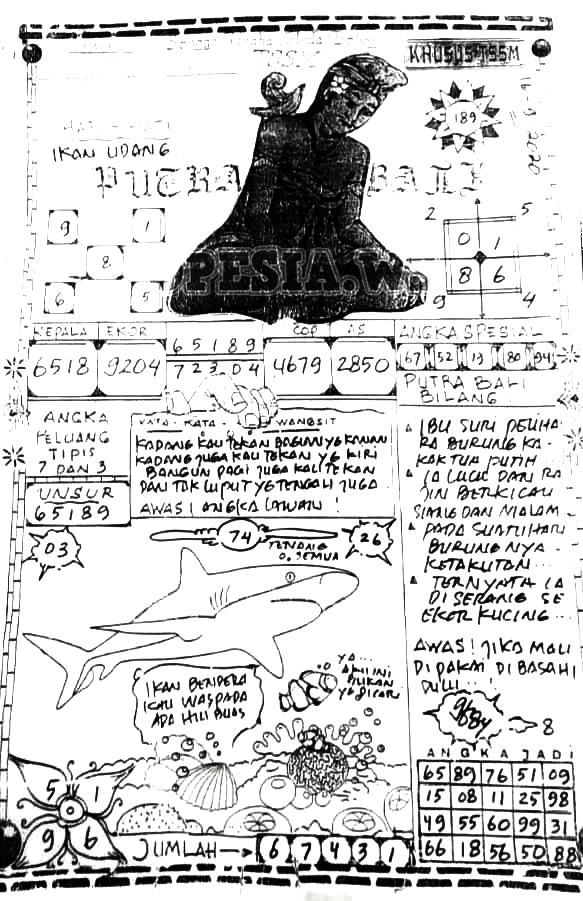 KHUSUS TSSM
189
IKAN UDANG
PUTRA BALI
PESIA.W.
9 1
8
6 5
2 5
0 1
8 6
9 4
KEPALA EKOR
6518 9204
6 5 1 8 9
7 2 3 0 4
COP AS
4679 2850
ANGKA SPESIAL
67 52 19 80 94
ANGKA
PELUANG
TIPIS
7 DAN 3
UNSUR
65189
KATA - KATA WANGSIT
KADANG KAU TEKAN BAGIAN YG KANAN
KADANG JUGA KAU TEKAN YG KIRI
BANGUN PAGI JUGA KAU TEKAN
DAN TAK LUPUT YG TENGAH JUGA.
AWAS! ANGKA LAWAN!
PUTRA BALI
BILANG:
IBU SURI PELIHA
RA BURUNG KA-
KAKTUA PUTIH
IA LUCU DAN RA
JIN BERKICAU
SIANG DAN MALAM
PADA SUATU HARI
BURUNGNYA
KETAKUTAN...
TERNYATA IA
DI SERANG SE
EKOR KUCING...
AWAS! JIKA MAU
DIPAKAI DIBASAHI
DULU...!
03
74
26
TENANG
0. SEMUA
IKAN BENDERA
KAU WASPADA
ADA HIU BUAS
YA...
AKU INI
BUKAN
YG DICARI
8
ANGKA JADI
65 89 76 51 09
15 08 11 25 98
49 55 60 99 31
66 18 56 50 88
5 1
9 6
JUMLAH → 6 7 4 3 1